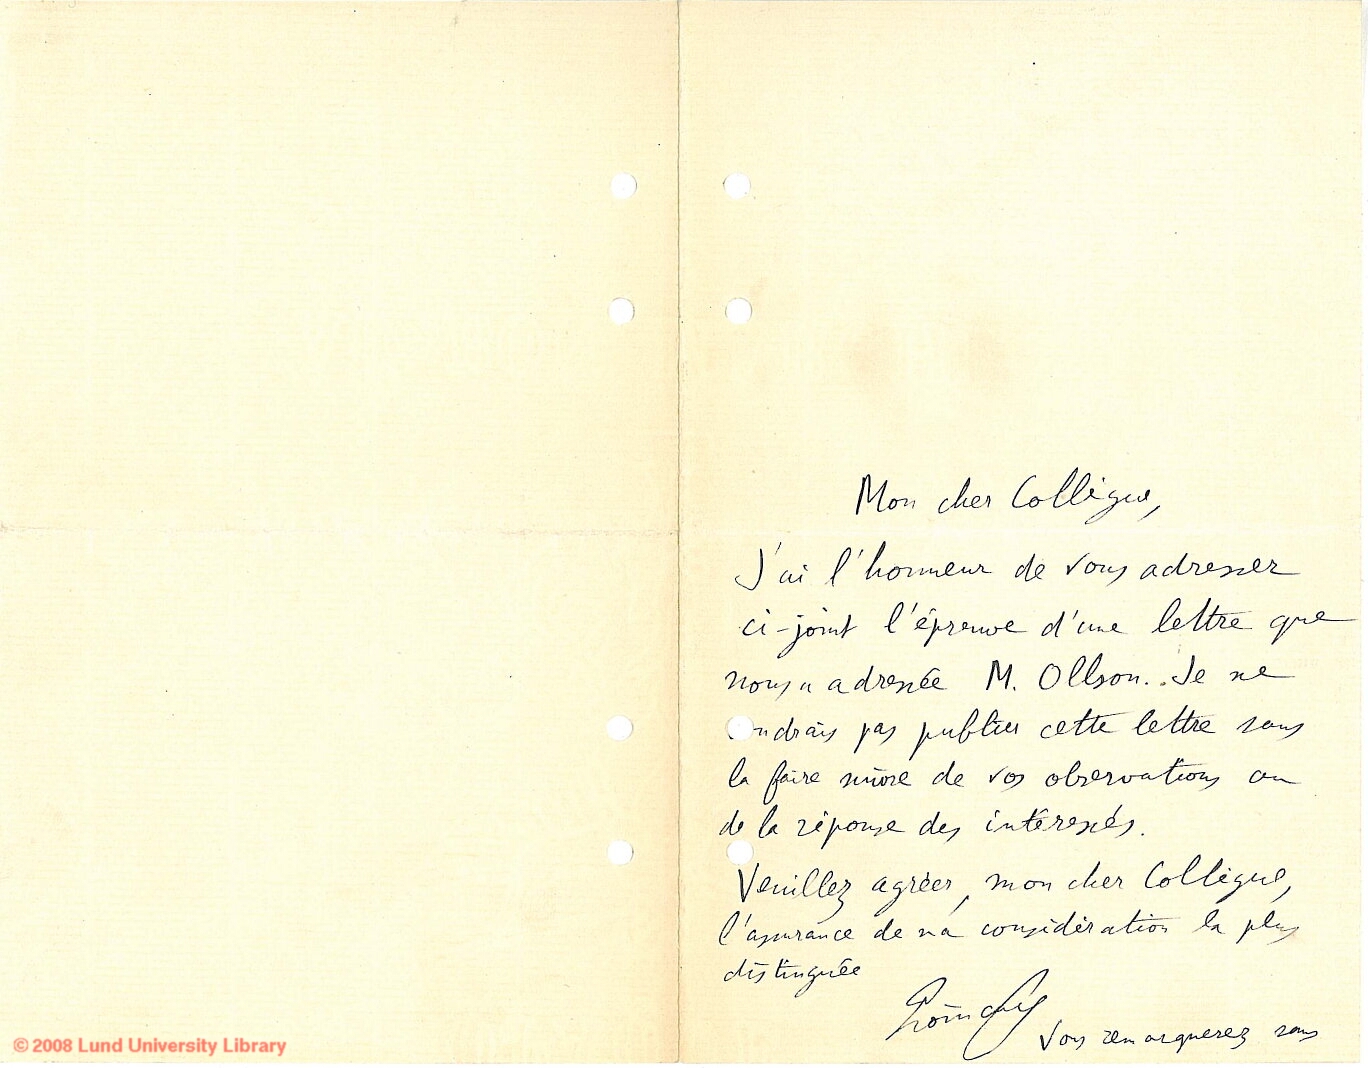 Mon cher Collègue,
J'ai l'honneur de vous adresser
ci-joint l'épreuve d'une lettre que
nous a adressée M. Ollson. Je ne
voudrais pas publier cette lettre sans
la faire suivre de vos observations ou
de la réponse des intéressés.
Veuillez agréer, mon cher Collègue,
l'assurance de ma considération la plus
distinguée
Poincaré
Vous remarquerez sans
© 2008 Lund University Library